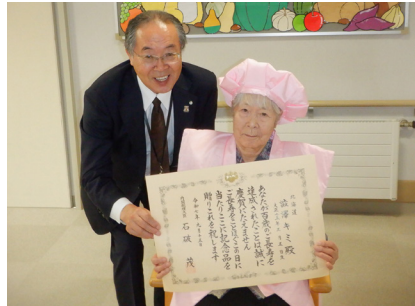 北海道
キミ殿
あなたが百歳のご長寿を
達成されたことは誠に
慶賀にたえません
ご長寿をことほぐ日に
当たりここに記念品を
贈りこれを祝します
内閣総理大臣 石破 茂